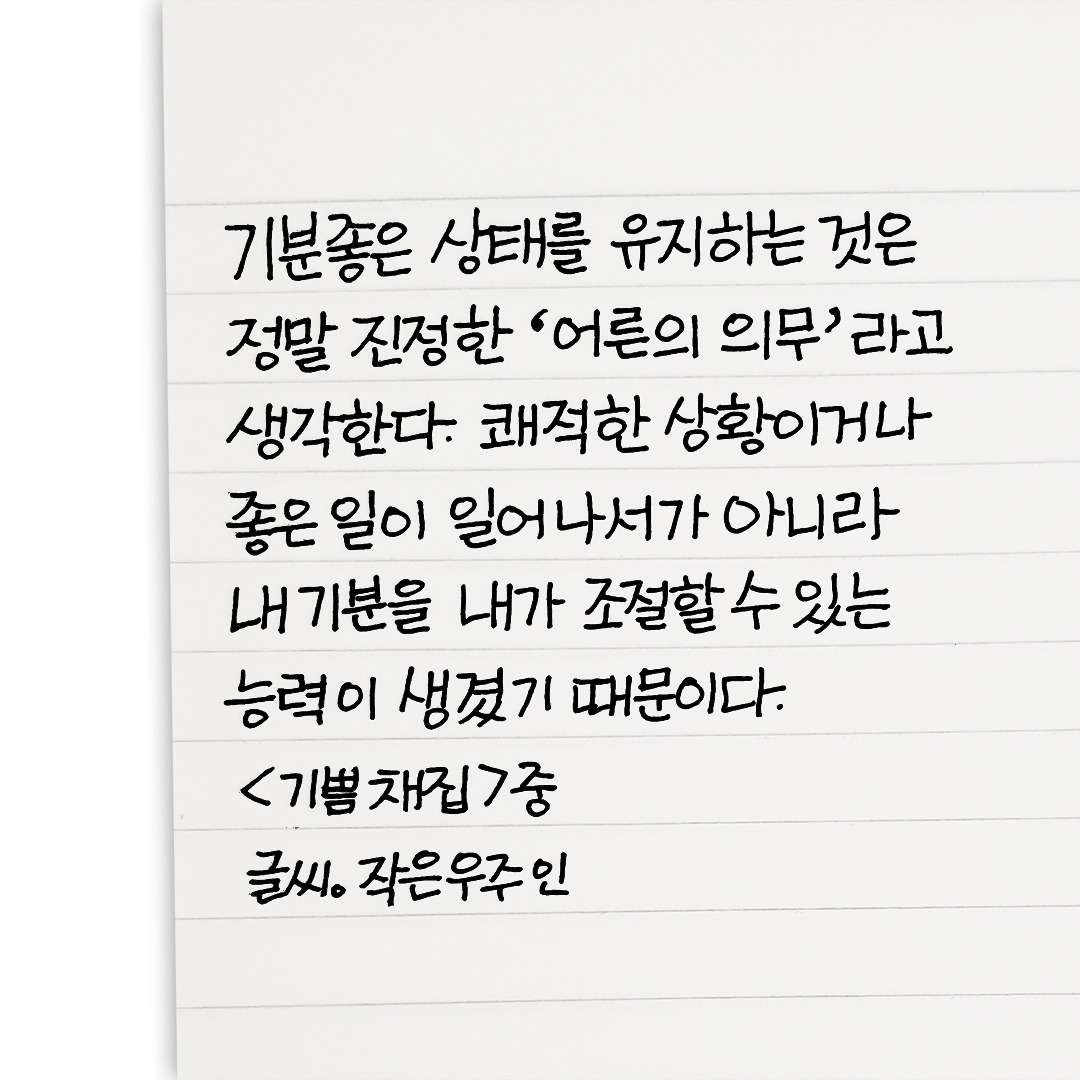 기분좋은 상태를 유지하는 것은
정말 진정한 ‘어른의 의무’라고
생각한다. 쾌적한 상황이거나
좋은 일이 일어나서가 아니라
내 기분을 내가 조절할 수 있는
능력이 생겼기 때문이다.
<기쁨 채집>중
글씨。작은우주인